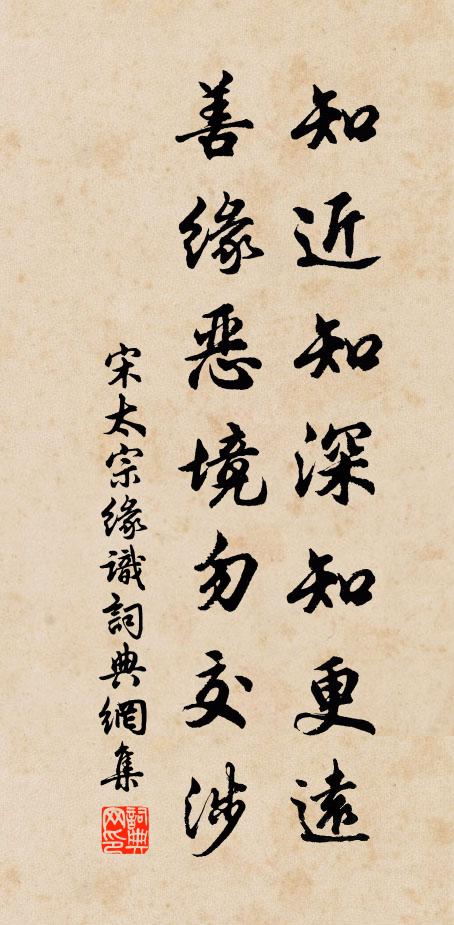 知近知深知更遠
善緣惡境勿交涉
宋太宗緣識詞典網集
詞典網印